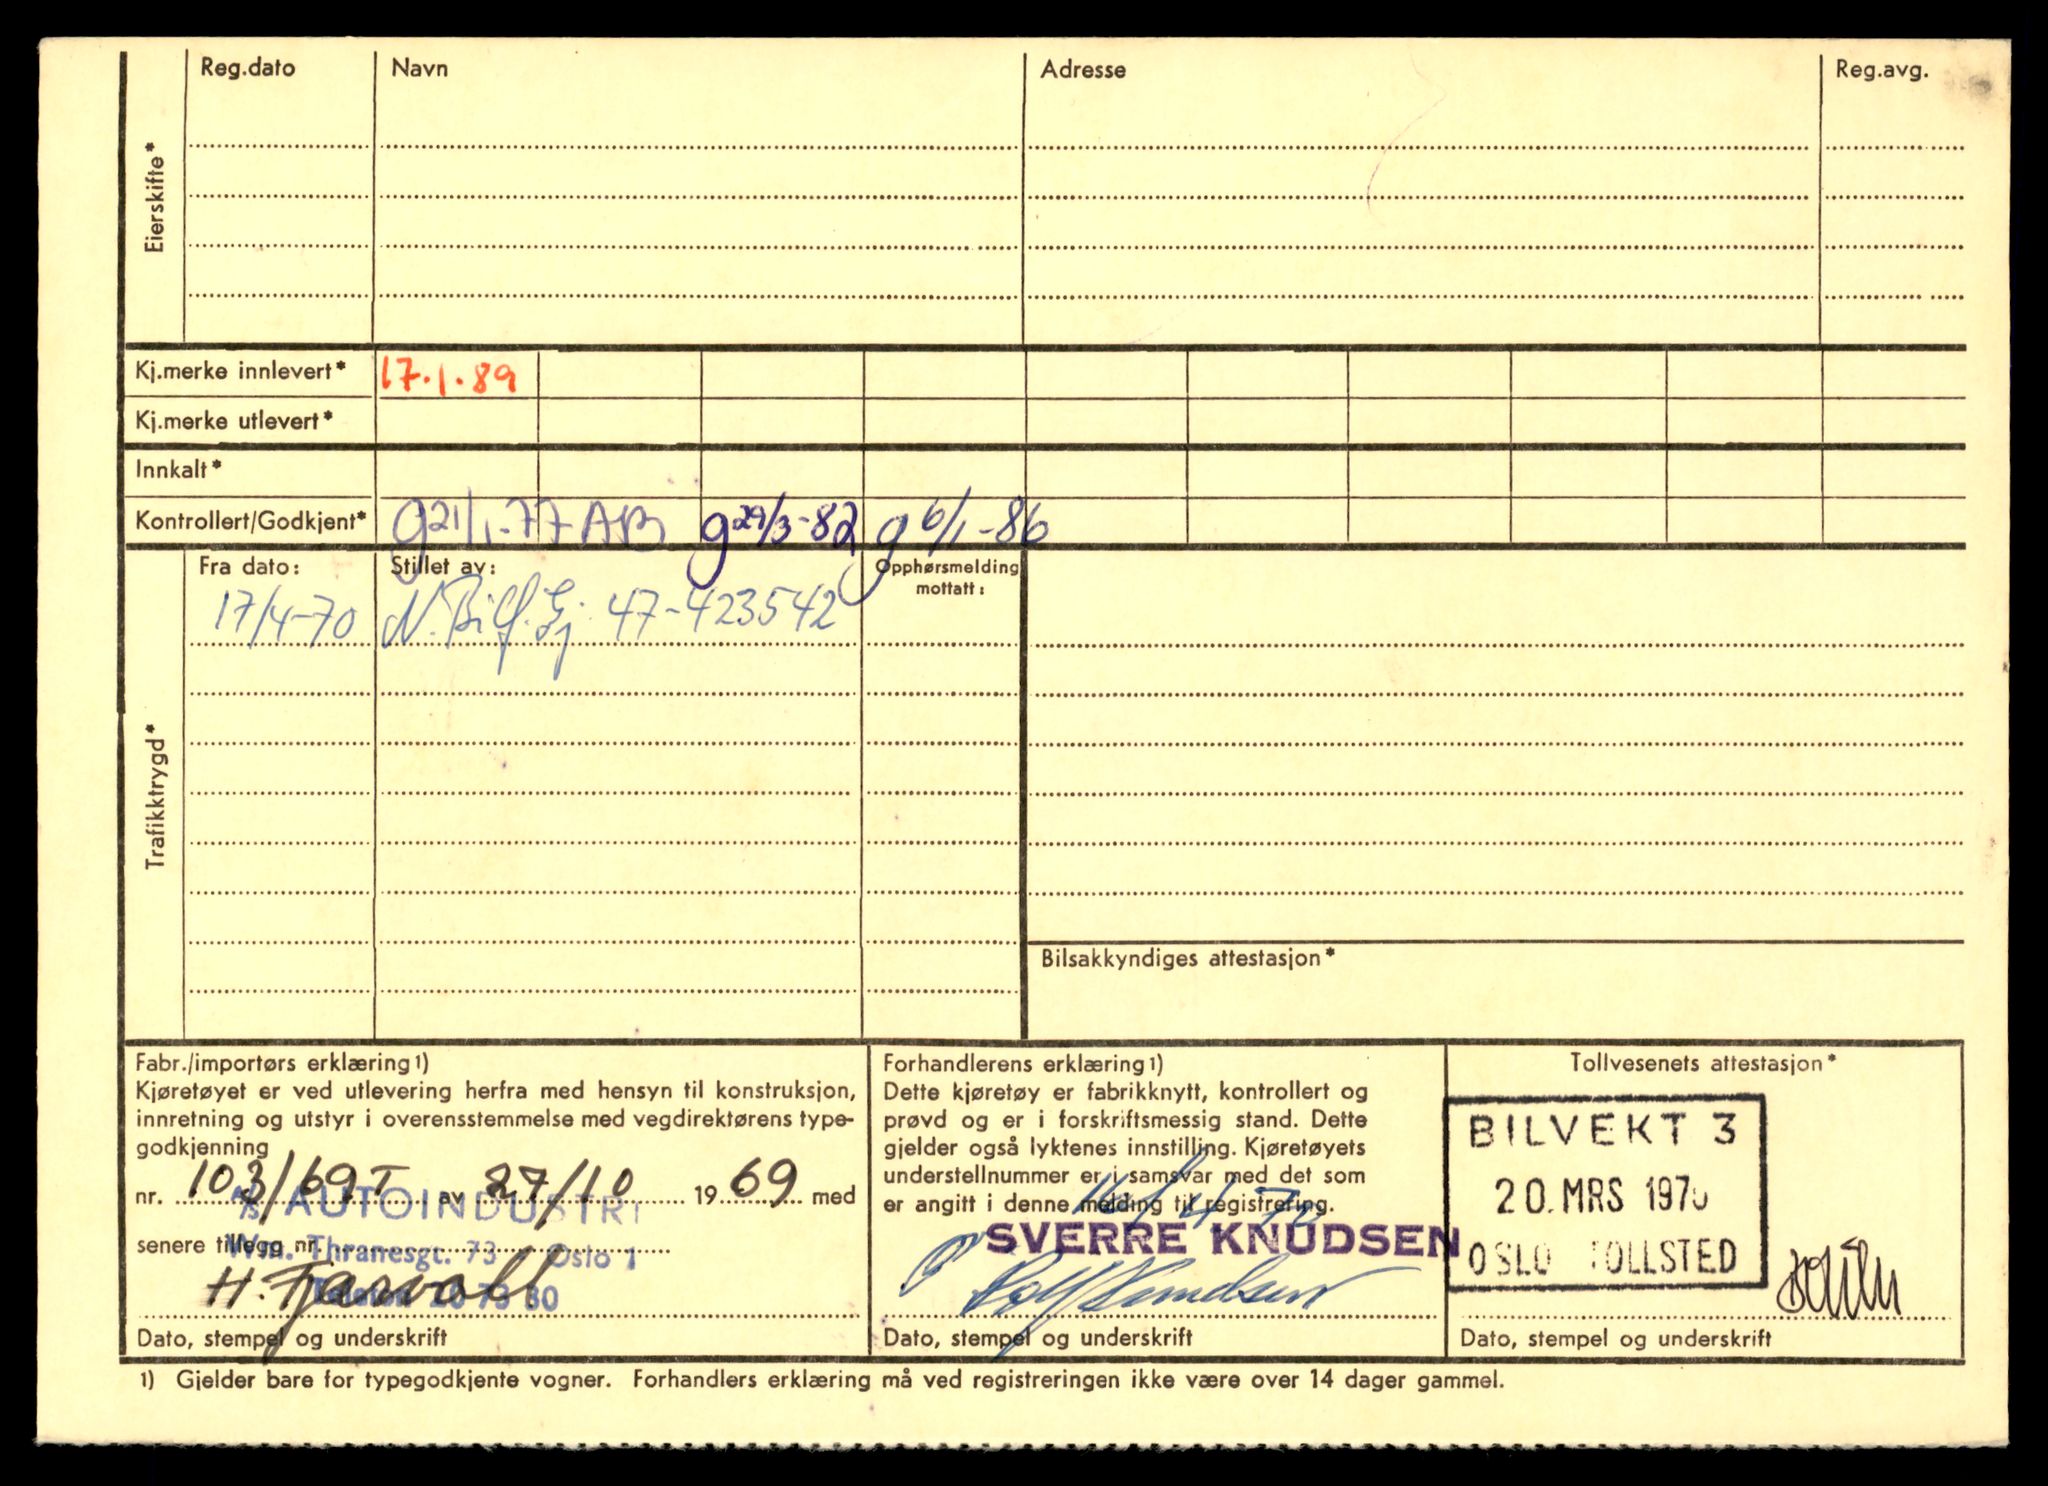 Reg.dato Navn Adresse Reg.avg.
Eierskifte*
Kj.merke innlevert* 17.1.89
Kj.merke utlevert*
Innkalt*
Kontrollert/Godkjent* g21/1-77 AB g29/3-82 g6/1-86
Trafikktrygd*
Fra dato: Stillet av: Opphørsmelding
mottatt:
17/4-70 N. Bilf. Gj. 47-423542
Bilsakkyndiges attestasjon*
Fabr./importørs erklæring1)
Kjøretøyet er ved utlevering herfra med hensyn til konstruksjon,
innretning og utstyr i overensstemmelse med vegdirektørens type-
godkjenning
nr. 103/69T av 27/10 1969 med
A/S AUTOINDUSTRI
senere tillegg nr.
Wm. Thranesgt. 73 Oslo 1
Telefon 20 73 80
Dato, stempel og underskrift
Forhandlerens erklæring1)
Dette kjøretøy er fabrikknytt, kontrollert og
prøvd og er i forskriftsmessig stand. Dette
gjelder også lyktenes innstilling. Kjøretøyets
understellnummer er i samsvar med det som
er angitt i denne melding til registrering.
SVERRE KNUDSEN
Rolf Knudsen
Dato, stempel og underskrift
Tollvesenets attestasjon*
BILVEKT 3
20. MRS 1970
OSLO TOLLSTED
Dato, stempel og underskrift
1) Gjelder bare for typegodkjente vogner. Forhandlers erklæring må ved registreringen ikke være over 14 dager gammel.